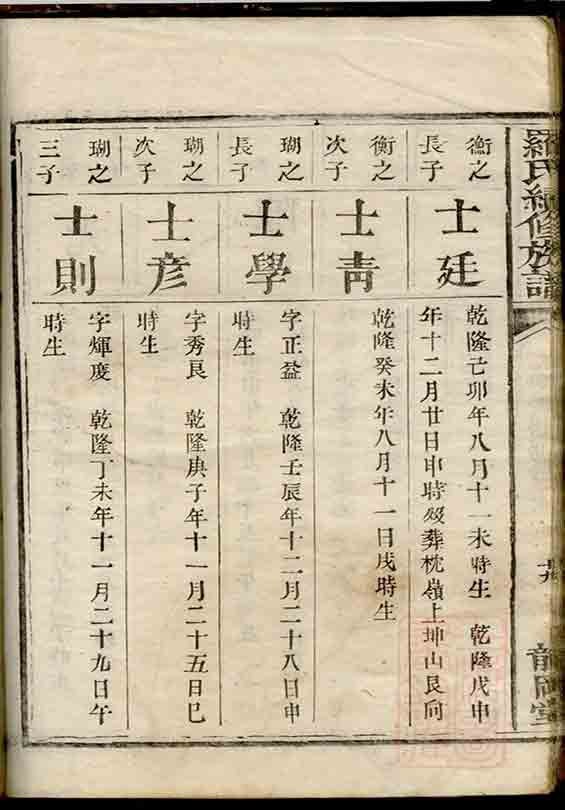 羅氏續修族譜
衡之
長子
士廷
乾隆己卯年八月十一未時生 乾隆戊申
年十二月廿日申時歿葬枕嶺上坤山艮向
衡之
次子
士靑
乾隆癸未年八月十一日戌時生
瑚之
長子
士學
字正益 乾隆壬辰年十二月二十八日申
時生
瑚之
次子
士彥
字秀良 乾隆庚子年十一月二十五日巳
時生
瑚之
三子
士則
字輝慶 乾隆丁未年十一月二十九日午
時生